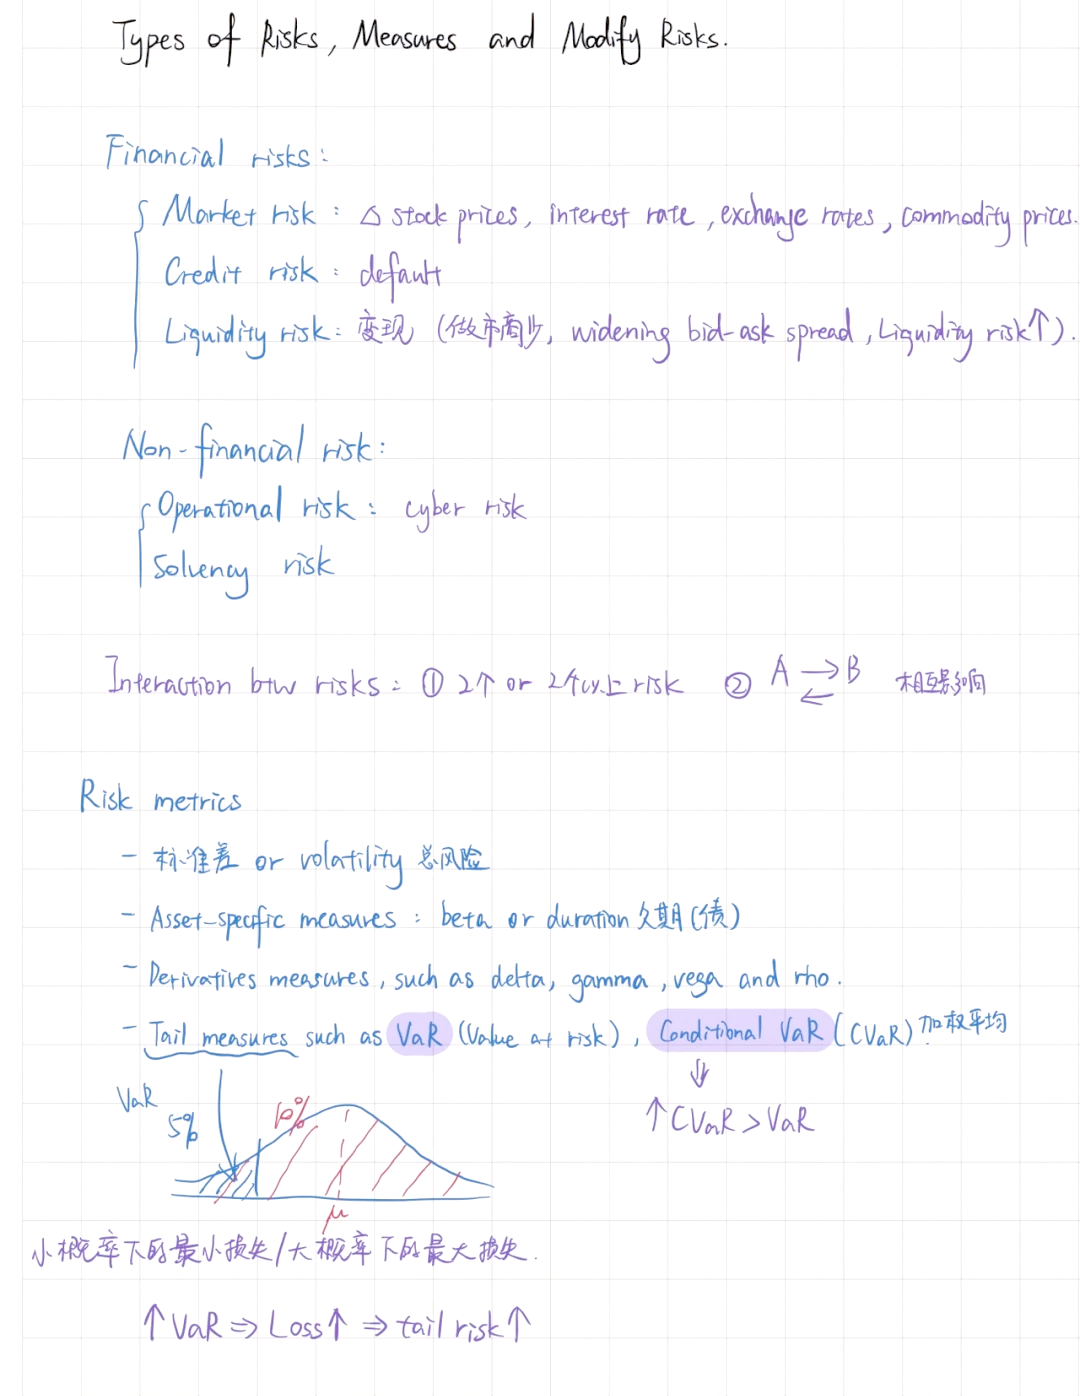 Types of Risks, Measures and Modify Risks.
Financial risks:
Market risk: △ stock prices, interest rate, exchange rates, commodity prices.
Credit risk: default
Liquidity risk: 变现 (做市商少, widening bid-ask spread, Liquidity risk↑).
Non-financial risk:
Operational risk: cyber risk
Solvency risk
Interaction btw risks: ① 2个 or 2个以上 risk ② A → ← B 相互影响
Risk metrics
- 标准差 or volatility 总风险
- Asset-specific measures: beta or duration 久期(债)
- Derivatives measures, such as delta, gamma, vega and rho.
- Tail measures such as VaR (Value at risk), Conditional VaR (CVaR) 加权平均.
⇓
↑CVaR > VaR
VaR
5%
10%
μ
小概率下的最小损失/大概率下的最大损失.
↑VaR ⇒ Loss↑ ⇒ tail risk↑